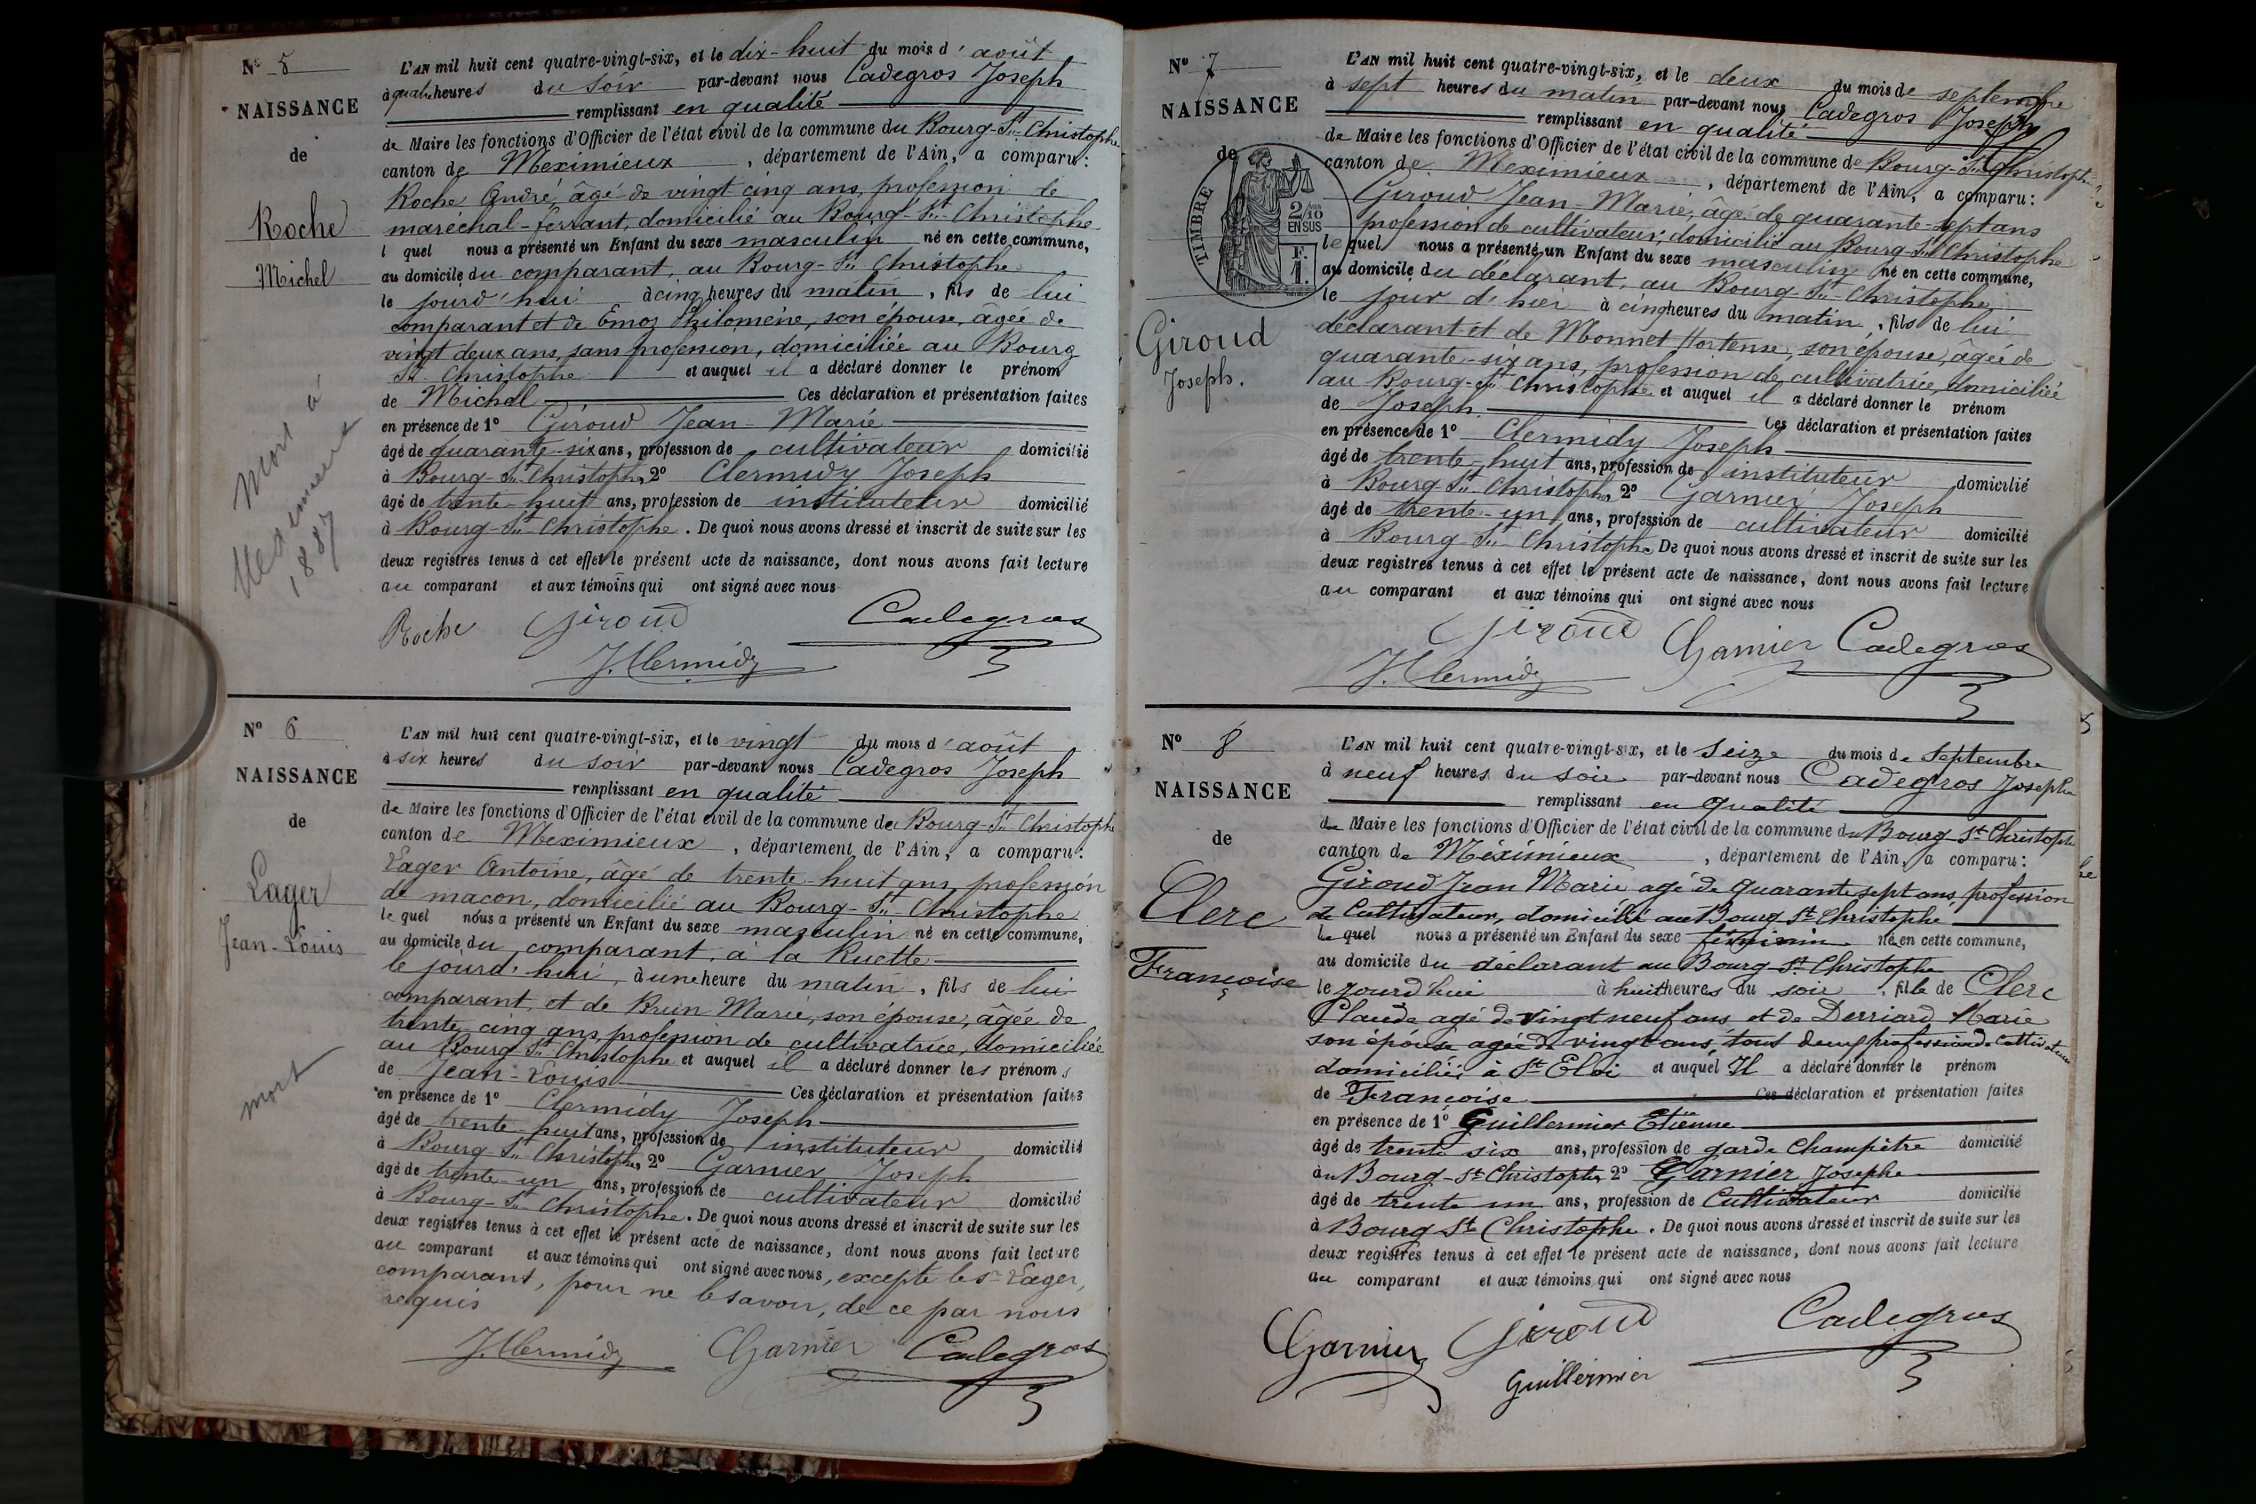 N° 5
NAISSANCE
de
Roche
Michel
Mort à
Meximieux
1887
L'AN mil huit cent quatre-vingt-six, et le dix-huit du mois d'août
à quatre heures du soir par-devant nous Cadegros Joseph
remplissant en qualité
de Maire les fonctions d'Officier de l'état civil de la commune du Bourg-St-Christophe
canton de Meximieux, département de l'Ain, a comparu:
Roche André, âgé de vingt cinq ans, profession de
maréchal-ferrant, domicilié au Bourg-St-Christophe
lquel nous a présenté un Enfant du sexe masculin né en cette commune,
au domicile du comparant, au Bourg-St-Christophe
le jourd'hui à cinq heures du matin, fils de lui
comparant et de Emoz Philomène, son épouse, âgée de
vingt deux ans, sans profession, domiciliée au Bourg
St-Christophe et auquel il a déclaré donner le prénom
de Michel Ces déclaration et présentation faites
en présence de 1° Giroud Jean-Marie
âgé de quarante-six ans, profession de cultivateur domicilié
à Bourg-St-Christophe, 2° Clermidy Joseph
âgé de trente-huit ans, profession de instituteur domicilié
à Bourg-St-Christophe. De quoi nous avons dressé et inscrit de suite sur les
deux registres tenus à cet effet le présent acte de naissance, dont nous avons fait lecture
au comparant et aux témoins qui ont signé avec nous
Roche Giroud Cadegros
J. Clermidy
N° 6
NAISSANCE
de
Lager
Jean-Louis
mort
L'AN mil huit cent quatre-vingt-six, et le vingt du mois d'août
à six heures du soir par-devant nous Cadegros Joseph
remplissant en qualité
de Maire les fonctions d'Officier de l'état civil de la commune de Bourg-St-Christophe
canton de Meximieux, département de l'Ain, a comparu:
Lager Antoine, âgé de trente-huit ans, profession
de maçon, domicilié au Bourg-St-Christophe
lequel nous a présenté un Enfant du sexe masculin né en cette commune,
au domicile du comparant, à la Ruette
le jourd'hui, à une heure du matin, fils de lui
comparant, et de Brun Marie, son épouse, âgée de
trente-cinq ans, profession de cultivatrice, domiciliée
au Bourg St-Christophe et auquel il a déclaré donner les prénoms
de Jean-Louis Ces déclaration et présentation faites
en présence de 1° Clermidy Joseph
âgé de trente-huit ans, profession de instituteur domicilié
à Bourg-St-Christophe, 2° Garnier Joseph
âgé de trente-un ans, profession de cultivateur domicilié
à Bourg-St-Christophe. De quoi nous avons dressé et inscrit de suite sur les
deux registres tenus à cet effet le présent acte de naissance, dont nous avons fait lecture
au comparant et aux témoins qui ont signé avec nous, excepté le sr Lager,
comparant, pour ne le savoir, de ce par nous
requis
J. Clermidy Garnier Cadegros
N° 7
NAISSANCE
de
TIMBRE
2/10
EN SUS
F.
1.
Giroud
Joseph.
L'AN mil huit cent quatre-vingt-six, et le deux du mois de septembre
à sept heures du matin par-devant nous Cadegros Joseph
remplissant en qualité
de Maire les fonctions d'Officier de l'état civil de la commune de Bourg-St-Christophe
canton de Meximieux, département de l'Ain, a comparu:
Giroud Jean-Marie, âgé de quarante-sept ans
profession de cultivateur, domicilié au Bourg-St-Christophe
lequel nous a présenté un Enfant du sexe masculin né en cette commune,
au domicile du déclarant, au Bourg St-Christophe
le jour d'hier à cinq heures du matin, fils de lui
déclarant et de Monnet Hortense, son épouse, âgée de
quarante-six ans, profession de cultivatrice, domiciliée
au Bourg-St-Christophe et auquel il a déclaré donner le prénom
de Joseph. Ces déclaration et présentation faites
en présence de 1° Clermidy Joseph
âgé de trente-huit ans, profession de instituteur domicilié
à Bourg-St-Christophe, 2° Garnier Joseph
âgé de trente-un ans, profession de cultivateur domicilié
à Bourg-St-Christophe. De quoi nous avons dressé et inscrit de suite sur les
deux registres tenus à cet effet le présent acte de naissance, dont nous avons fait lecture
au comparant et aux témoins qui ont signé avec nous
Giroud Garnier Cadegros
J. Clermidy
N° 8
NAISSANCE
de
Clerc
Françoise
L'AN mil huit cent quatre-vingt-six, et le Seize du mois de Septembre
à neuf heures du soir par-devant nous Cadegros Josephe
remplissant en qualité
de Maire les fonctions d'Officier de l'état civil de la commune du Bourg-St-Christophe
canton de Méximieux, département de l'Ain, a comparu:
Giroud Jean Marie agé de quarante sept ans, profession
de Cultivateur, domicilié au Bourg St-Christophe
lequel nous a présenté un Enfant du sexe féminin né en cette commune,
au domicile du déclarant au Bourg-St-Christophe
le jourd'hui à huit heures du soir, fille de Clerc
Claude agé de vingt neuf ans et de Derriard Marie
son épouse agée de vingt ans tous deux profession de Cultivateurs
domiciliés à St-Eloi et auquel Il a déclaré donner le prénom
de Françoise Ces déclaration et présentation faites
en présence de 1° Guillermier Etienne
âgé de trente six ans, profession de garde Champêtre domicilié
au Bourg-St-Christophe, 2° Garnier Josephe
âgé de trente un ans, profession de Cultivateur domicilié
à Bourg St Christophe. De quoi nous avons dressé et inscrit de suite sur les
deux registres tenus à cet effet le présent acte de naissance, dont nous avons fait lecture
au comparant et aux témoins qui ont signé avec nous
Garnier Giroud Cadegros
Guillermier